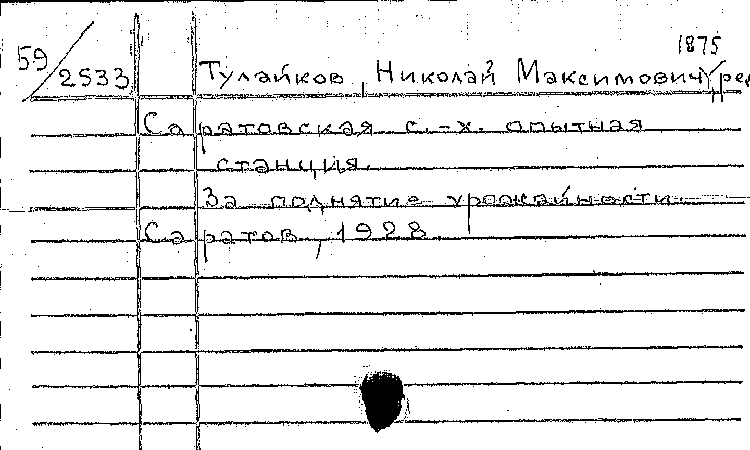 1875
59/2533 Тулайков, Николай Максимович, ред
Саратовская с.-х. опытная
станция.
За поднятие урожайности.
Саратов, 1928